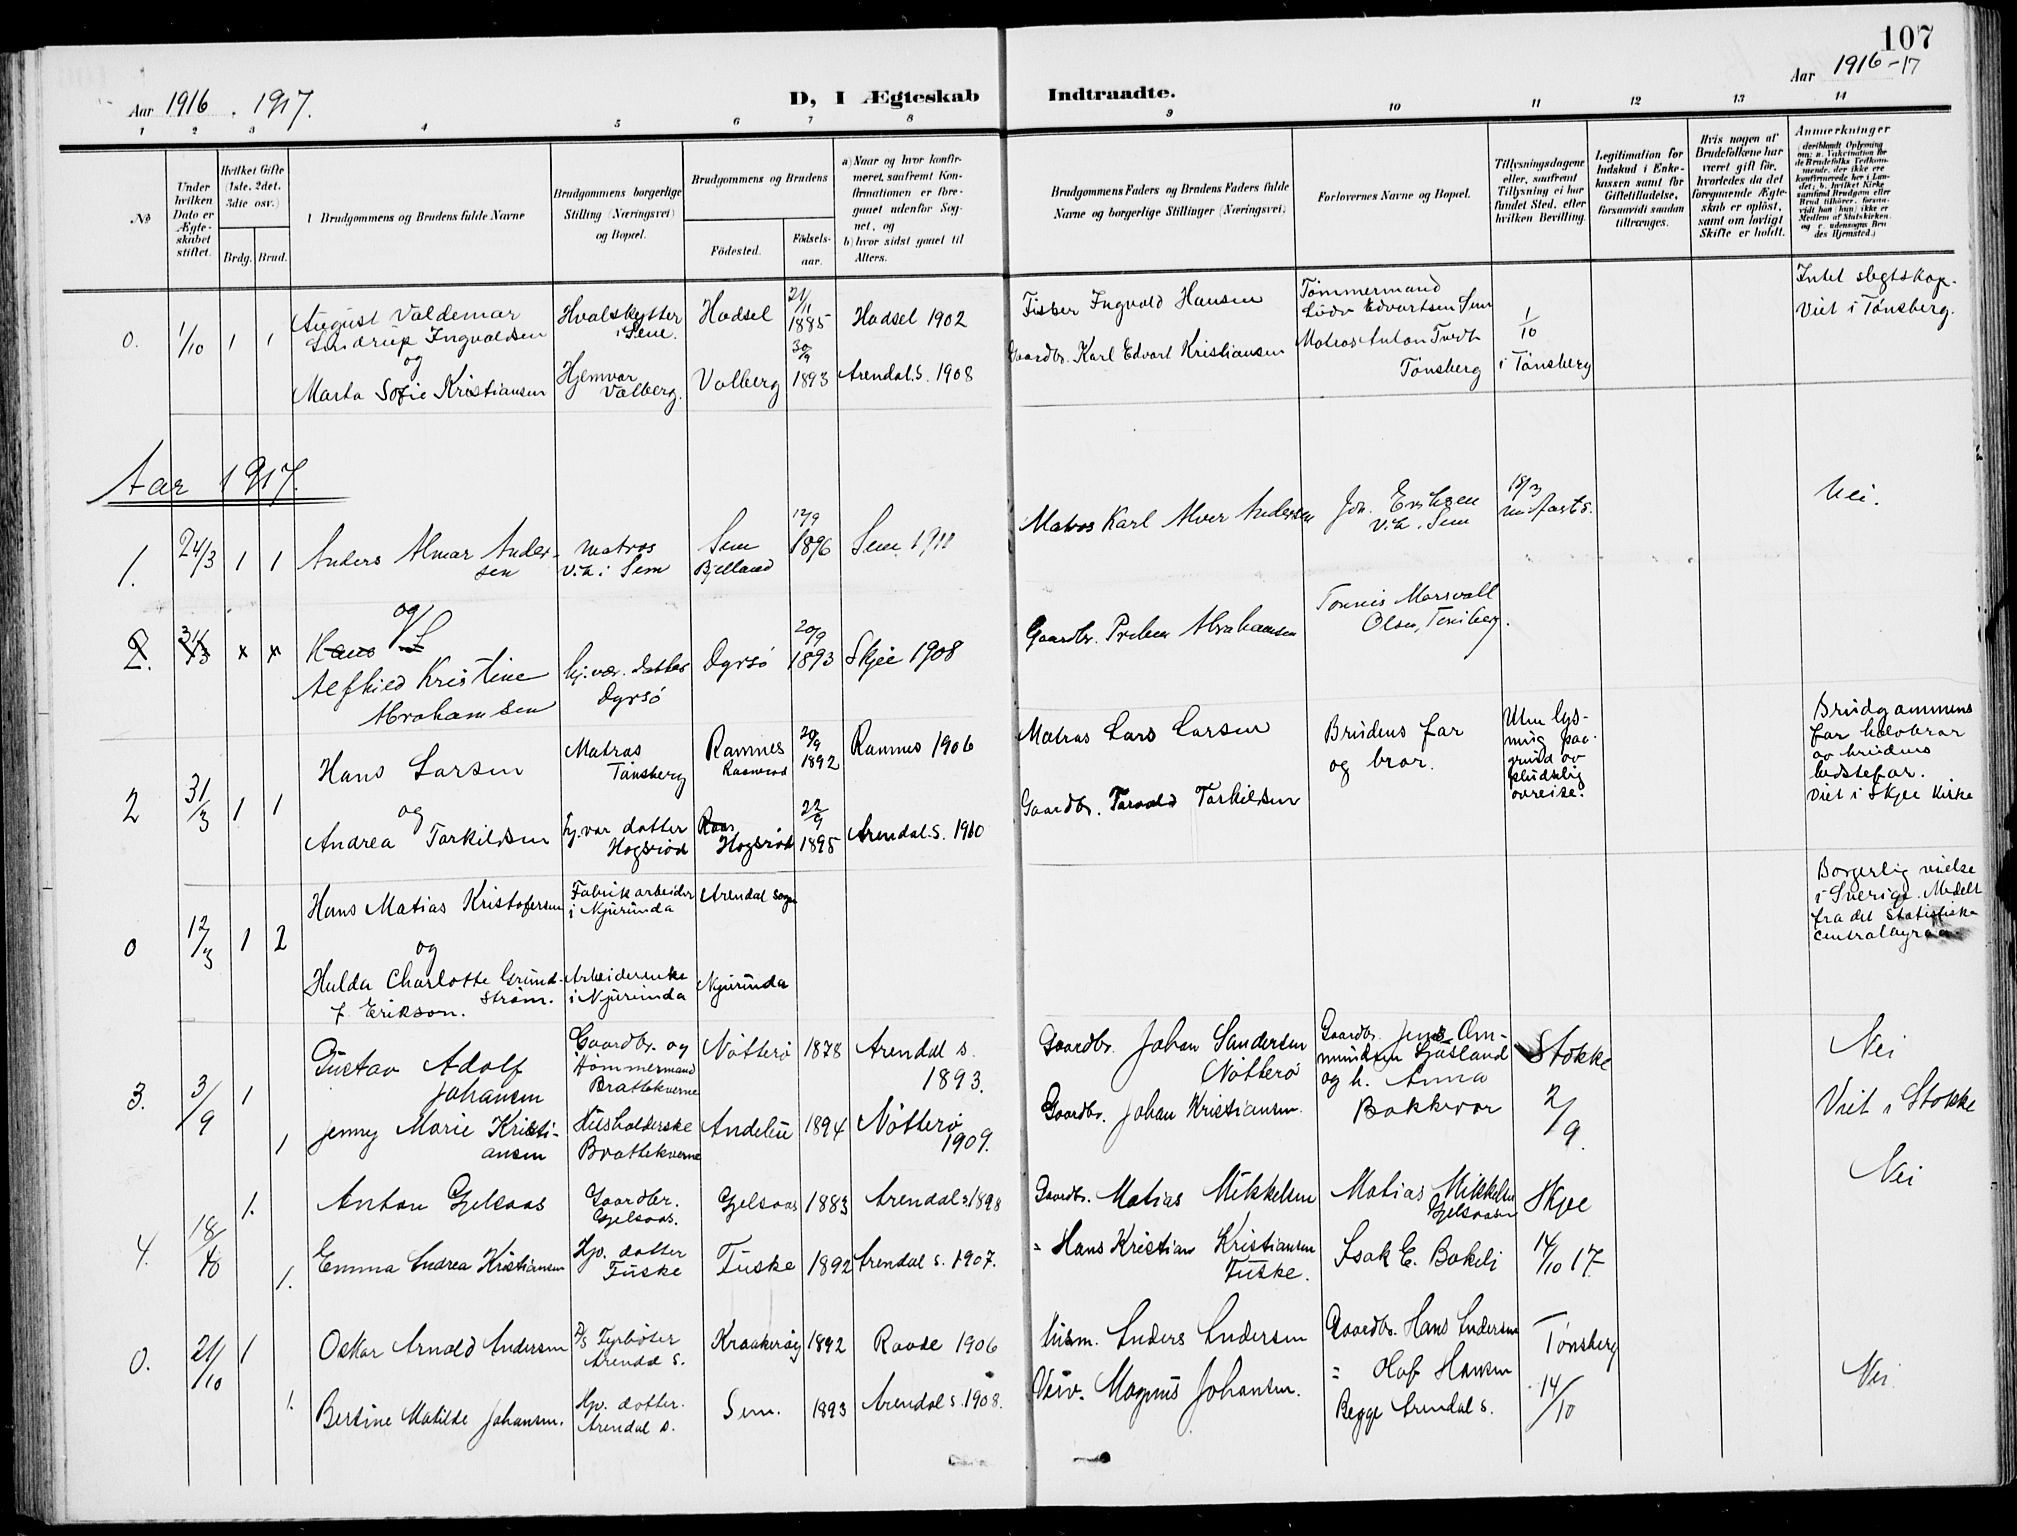 107
Aar 1916 . 1917.
D, I Ægteskab Indtraadte.
Aar 1916-17
1 2 3 4 5 6 7 8 9 10 11 12 13 14
No
Under hvilken Dato er Ægteskabet stiftet.
Hvilket Gifte (1ste. 2det. 3die osv.)
Brdg. Brud.
Brudgommens og Brudens fulde Navne
Brudgommens borgerlige Stilling (Næringsvei) og Bopæl.
Brudgommens og Brudens
Födested.
Födsels-aar.
a) Naar og hvor konfirmeret, saafremt Konfirmationen er foregaaet udenfor Sognet, og
b) hvor sidst gaaet til Alters.
Brudgommens Faders og Brudens Faders fulde Navne og borgerlige Stillinger (Næringsvei)
Forlovernes Navne og Bopæl.
Tillysningsdagene eller, saafremt Tillysning ei har fundet Sted, efter hvilken Bevilling.
Legitimation for Indskud i Enkekassen samt for Giftetilladelse, forsaavidt saadan tiltrænges.
Hvis nogen af Brudefolkene har været gift før, hvorledes da det foregaaende Ægteskab er opløst, samt om lovligt Skifte er holdt.
Anmerkninger
0. 1/10 1 1
August Valdemar
Lindrup Ingvaldsen
og
Marta Sofie Kristiansen
Hvalskytter
i Sem.
Hjemvar
Valberg.
Hadsel
Valberg
21/11
1885
30/9
1893
Hadsel 1902
Arendal. S. 1908
Fisker Ingvald Hansen
Gaardbr. Karl Edvart Kristiansen
Tömmermand
Edvartsen Sem
Matros Anton
Tönsberg
1/10
i Tönsberg
Intet slegtskap.
Viet i Tönsberg.
Aar 1917.
1. 24/3 1 1
Anders Almar Andersen
og
Matros
Vik i Sem
Sem
Bjelland
12/9
1896
Sem 1911
Matros Karl Alver Andersen
Joh. Eriksen
Vik. Sem
18/3
Nei.
2. 31/3 x x
Hans L
Alfhild Kristine
Abrahamsen
hj. vær. datter
Dyrsö
Dyrsö
20/9
1893
Skjee 1908
Gaardbr. Preben Abrahamsen
Tönnes Marsvall
Olsen, Tönsberg.
2 31/3 1 1
Hans Larsen
og
Andrea Tarkildsen
Matros
Tönsberg
hj. vær datter
Hogsröd
Ramnes
Hogsröd
20/9
1892
22/9
1895
Ramnes 1906
Arendal S. 1910
Matros Lars Larsen
Gaardbr. Tarald Tarkildsen
Brudens far
og bror.
Uten lys-
ning paa
grund av
pludselig
avreise.
Brudgommens
far halvbror
av brudens
bedstefar.
Viet i Skjee Kirke
0 12/3 1 2
Hans Matias Kristofersen
og
Hulda Charlotte Grund-
ström.
f. Erikson.
Fabrikarbeider
i Njurunda
Arbeiderenke
i Njurunda
Arendal sogn
Njurunda
Borgerlig vielse
i Sverige. Medelt
fra det Statistiske
Centralbyraa
3. 3/9 1 1
Gustav Adolf
Johansen
Jenny Marie Kristi-
ansen
Gaardbr. og
Tömmermand
Brattekverne
Husholderske
Brattekverne
Nötterö
Andebu
1878
1894
Arendal s.
1893.
Nötterö
1909.
Gaardbr. Johan Sandersen
Nötterö
Gaardbr. Johan Kristiansen.
Gaardbr. Jens Om-
mundsen Gjösland
og h. Anna
Bakkevar
Stokke
2/9
Nei
Viet i Stokke
4. 18/10 1. 1.
Anton Gjelsaas
Emma Andrea Kristiansen
Gaardbr.
Gjelsaas.
Hp. datter
Fuske
Gjelsaas
Fuske
1883
1892
Arendal s. 1898
Arendal s. 1907.
Gaardbr. Matias Mikkelsen
" Hans Kristian Kristiansen
Fuske.
Matias Mikkelsen
Gjelsaasen
Isak E. Bakeli
Skjee
14/10 17
Nei
0. 21/10 1 1.
Oskar Arnold Andersen
Bertine Matilde Johansen.
D/S Fyrböter
Arendal s.
Hp. datter.
Arendal s.
Kraakeröy
Sem.
1892
1893
Raade 1906
Arendal s. 1908.
Husm. Anders Andersen
Magnus Johansen.
Gaardbr. Hans Andersen
" Olaf Hansen
Begge Arendal s.
Tönsberg
14/10
Nei